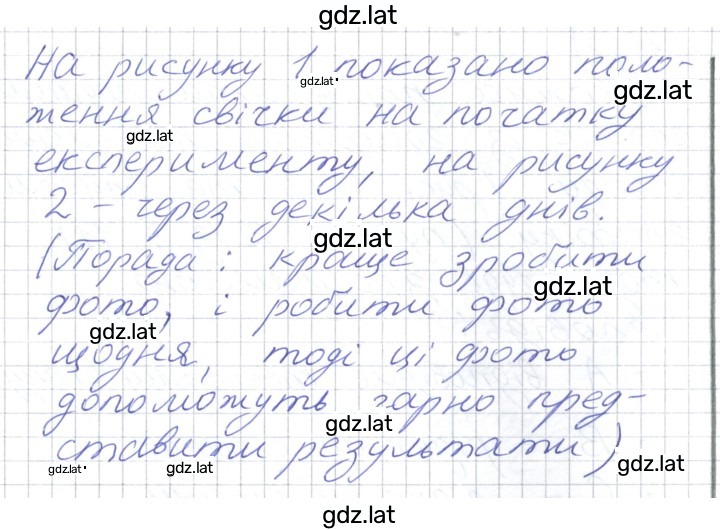 gdz.lat
На рисунку 1 показано поло-
gdz.lat
gdz.lat
ження свічки на початку
gdz.lat
експерименту, на рисунку
2 - через декілька днів.
gdz.lat
(Порада: краще зробити
gdz.lat
фото, і робити фото
gdz.lat
щодня, тоді ці фото
допоможуть гарно пред-
gdz.lat
ставити результати)
gdz.lat
gdz.lat
gdz.lat
gdz.lat